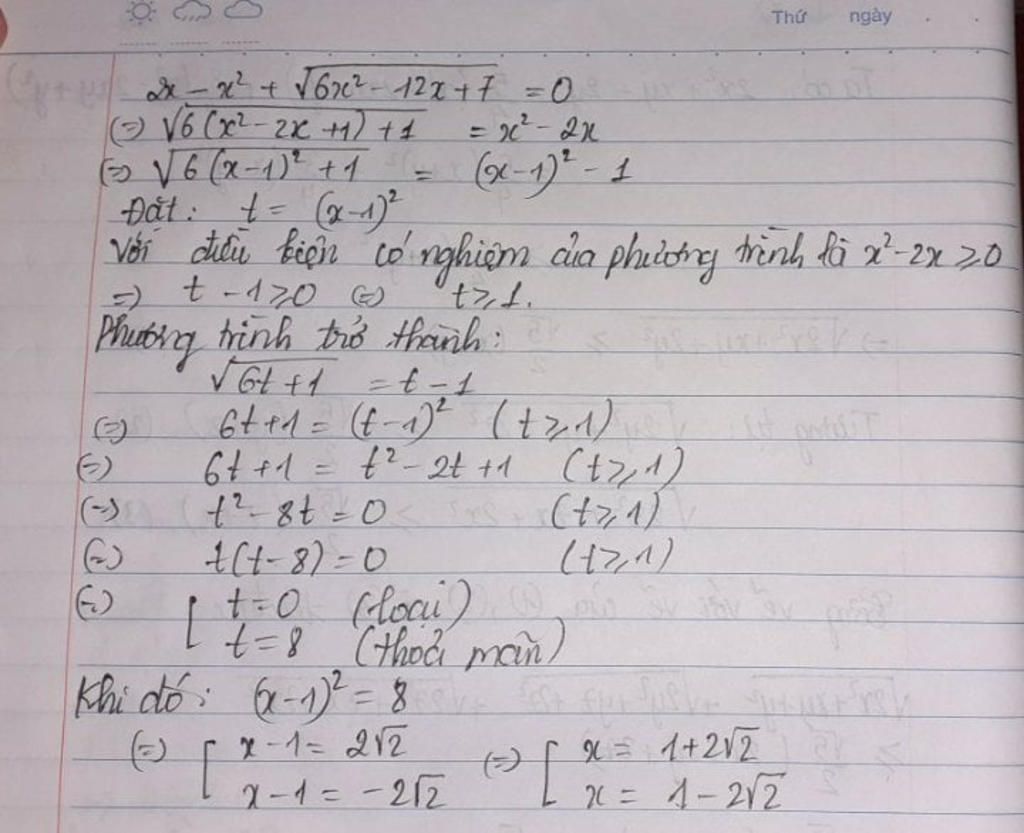 Thứ ngày
2x - x² + √(6x² - 12x + 7) = 0
(=) √(6(x² - 2x + 1) + 1) = x² - 2x
(=) √(6(x-1)² + 1) = (x-1)² - 1
Đặt: t = (x-1)²
Với điều kiện có nghiệm của phương trình là x² - 2x ≥ 0
=) t - 1 ≥ 0 (=) t ≥ 1.
Phương trình trở thành:
√(6t + 1) = t - 1
(=) 6t + 1 = (t - 1)² (t ≥ 1)
(=) 6t + 1 = t² - 2t + 1 (t ≥ 1)
(=) t² - 8t = 0 (t ≥ 1)
(=) t(t - 8) = 0 (t ≥ 1)
(=) [ t = 0 (loại)
t = 8 (thoả mãn)
Khi đó: (x-1)² = 8
(=) [ x - 1 = 2√2 (=) [ x = 1 + 2√2
x - 1 = -2√2 x = 1 - 2√2